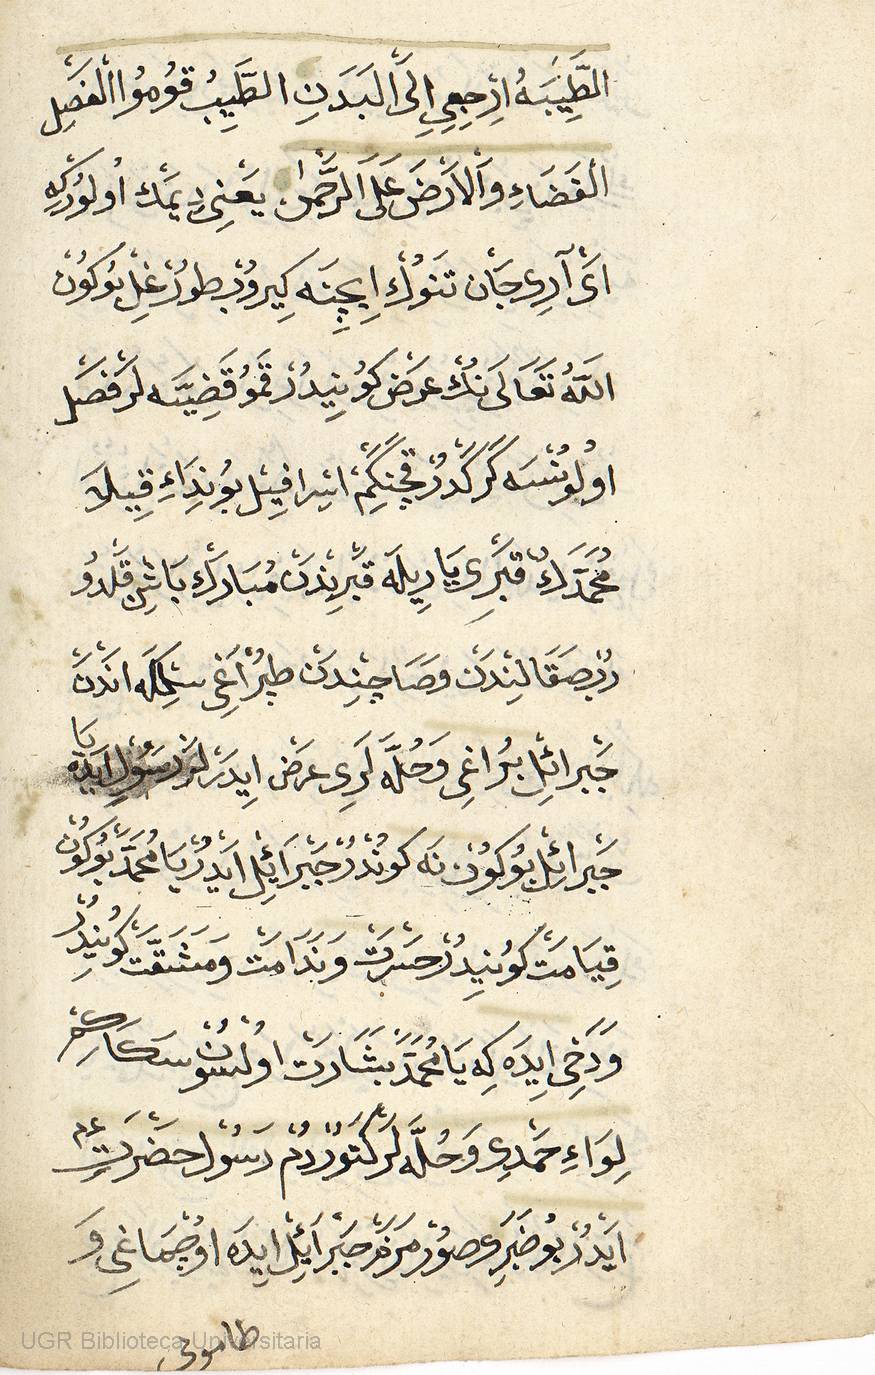 الطَّيِّبَةُ اِرْجِعِي اِلَى الْبَدَنِ الطَّيِّبُ قُومُوا الْفَصْلِ
الْقَضَاءِ وَالْاَرْضَ عَلَى الرَّحْمٰنِ يَعْنِى دِيمَكْ اُولُورْكِه
اَىْ آرِى جَانْ تَنُوكْ اِيچِنَه كِيرُوبْ طُورْغِلْ بُوكُونْ
اللّٰهُ تَعَالَى نُكْ عَرْضْ كُونِيدُرْ قَمُو قَضِيَّه لَرْ فَصْلْ
اُولُونْسَه كَرَكْدُرْ قَچَنْكِمْ اِسْرَافِيلْ بُو نِدَاءِ قِيلَه
مُحَمَّدَكْ قَبْرِى يَارِيلَه قَبْرِنْدَنْ مُبَارَكْ بَاشِنْ قَلْدُو
رُبْ صَقَالِنْدَنْ وَصَاچِنْدَنْ طُپْرَاغِى سِلْكَه اَنْدَنْ
جَبْرَائِلْ بُرَاغِى وَحُلَّه لَرِى عَرْضْ اِيدَرْلَرْ رَسُولْ اَيْدَه يَا
جَبْرَائِلْ بُوكُونْ نَه كُونْدُرْ جَبْرَائِلْ اَيْدُرْ يَا مُحَمَّدْ بُوكُونْ
قِيَامَتْ كُونِيدُرْ حَسْرَتْ وَنَدَامَتْ وَمَشَقَّتْ كُونِيدُرْ
وَدَخِى اِيدَه كِه يَا مُحَمَّدْ بَشَارَتْ اُولْسُونْ سَكَا كِمْ
لِوَاءِ حَمْدِى وَحُلَّه لَرْ كَتُورْدُمْ رَسُولْ حَضْرَتْ عم
اَيْدُرْ بُو خَبَرِى صُورْمَزَمْ جَبْرَائِلْ اِيدَه اُوچْمَاغِى وَ
طاموىى
UGR Biblioteca Universitaria